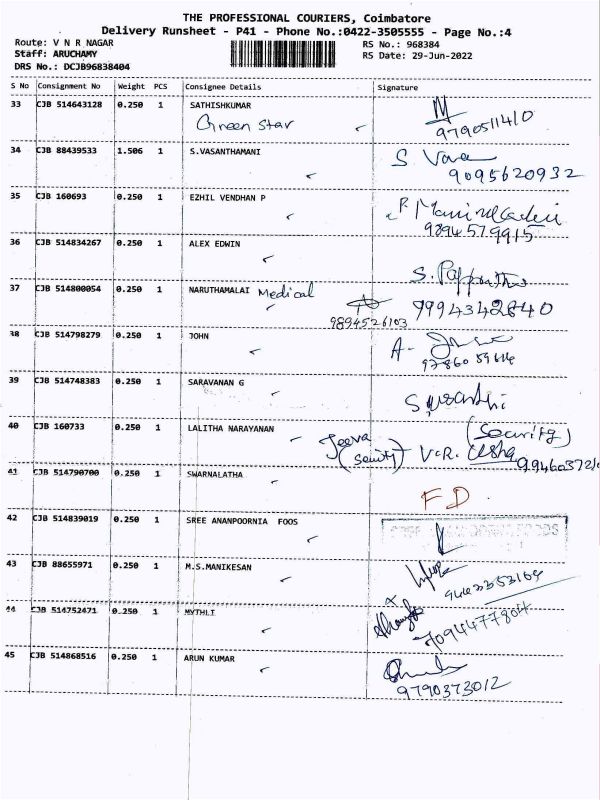 THE PROFESSIONAL COURIERS, Coimbatore
Delivery Runsheet - P41 - Phone No.:0422-3505555 - Page No.:4
Route: V N R NAGAR RS No.: 968384
Staff: ARUCHAMY RS Date: 29-Jun-2022
DRS No.: DCJB96838404
S No Consignment No Weight PCS Consignee Details Signature
33 CJB 514643128 0.250 1 SATHISHKUMAR
Green Star 9790511410
34 CJB 88439533 1.506 1 S.VASANTHAMANI S.
9095620932
35 CJB 160693 0.250 1 EZHIL VENDHAN P
9894579915
36 CJB 514834267 0.250 1 ALEX EDWIN
S.
37 CJB 514800054 0.250 1 NARUTHAMALAI Medical 9994342840
9894526103
38 CJB 514798279 0.250 1 JOHN A-
39 CJB 514748383 0.250 1 SARAVANAN G
40 CJB 160733 0.250 1 LALITHA NARAYANAN (Security)
Jeeva V.R. Usha
41 CJB 514790700 0.250 1 SWARNALATHA
FD
42 CJB 514839019 0.250 1 SREE ANANPOORNIA FOOS
43 CJB 88655971 0.250 1 M.S.MANIKESAN
9443353169
44 CJB 514752471 0.250 1 MYTHLI
7094477804
45 CJB 514868516 0.250 1 ARUN KUMAR
9790373012